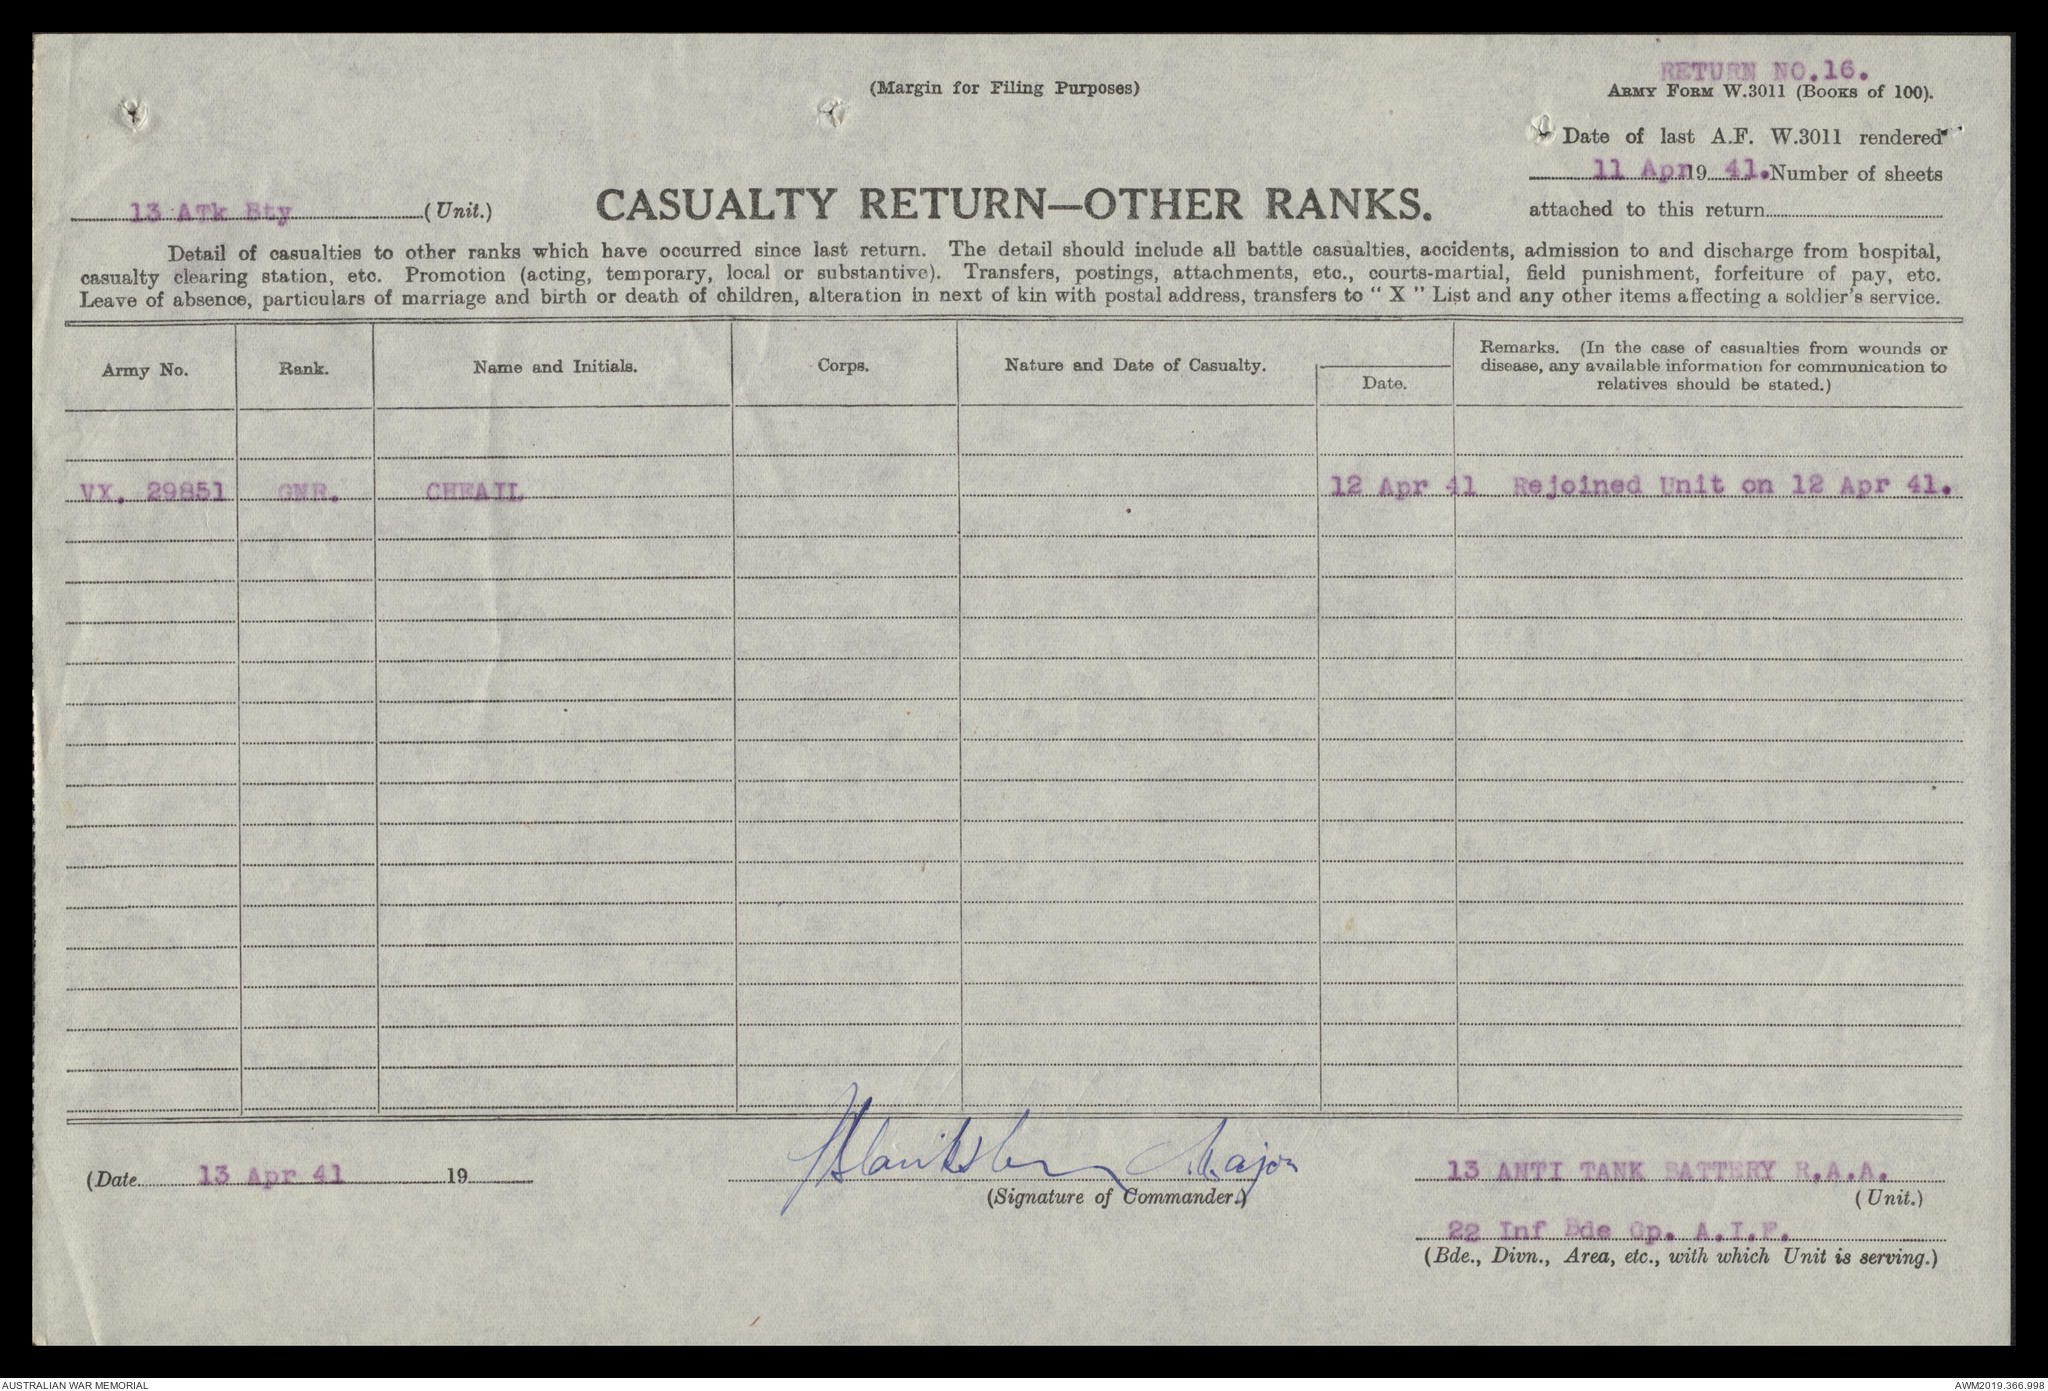 RETURN NO.16.
(Margin for Filing Purposes)
ARMY FORM W.3011 (BOOKS of 100).
Date of last A.F. W.3011 rendered
11 Apr 19 41. Number of sheets
attached to this return
13 ATk Bty (Unit.)
CASUALTY RETURN—OTHER RANKS.
Detail of casualties to other ranks which have occurred since last return. The detail should include all battle casualties, accidents, admission to and discharge from hospital,
casualty clearing station, etc. Promotion (acting, temporary, local or substantive). Transfers, postings, attachments, etc., courts-martial, field punishment, forfeiture of pay, etc.
Leave of absence, particulars of marriage and birth or death of children, alteration in next of kin with postal address, transfers to "X" List and any other items affecting a soldier's service.
Army No. Rank. Name and Initials. Corps. Nature and Date of Casualty. Date. Remarks. (In the case of casualties from wounds or
disease, any available information for communication to
relatives should be stated.)
VX. 29851 GNR. CHEAIL 12 Apr 41 Rejoined Unit on 12 Apr 41.
(Date 13 Apr 41 19
Major
(Signature of Commander.)
13 ANTI TANK BATTERY R.A.A.
(Unit.)
22 Inf Bde Gp. A.I.F.
(Bde., Divn., Area, etc., with which Unit is serving.)
AUSTRALIAN WAR MEMORIAL
AWM2019.366.998